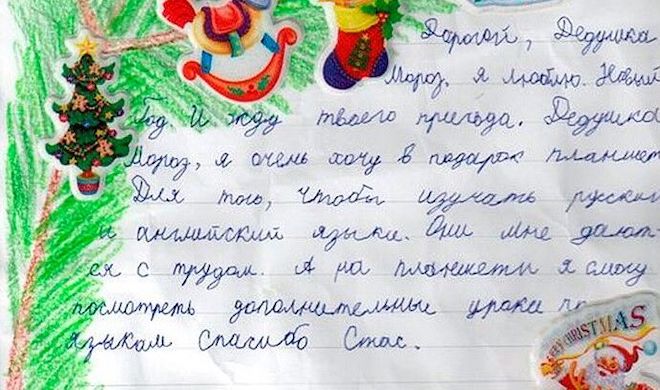 Дорогой, Дедушка
Мороз. Я люблю. Новый
Год. И жду твоего приезда. Дедушка
Мороз, я очень хочу в подарок планшет
Для того, чтобы изучать русский
и английский языки. Они мне дают-
ся с трудом. А на планшети я смогу
посмотреть дополнительные уроки по
языкам Спасибо Стас.
MERRY CHRISTMAS